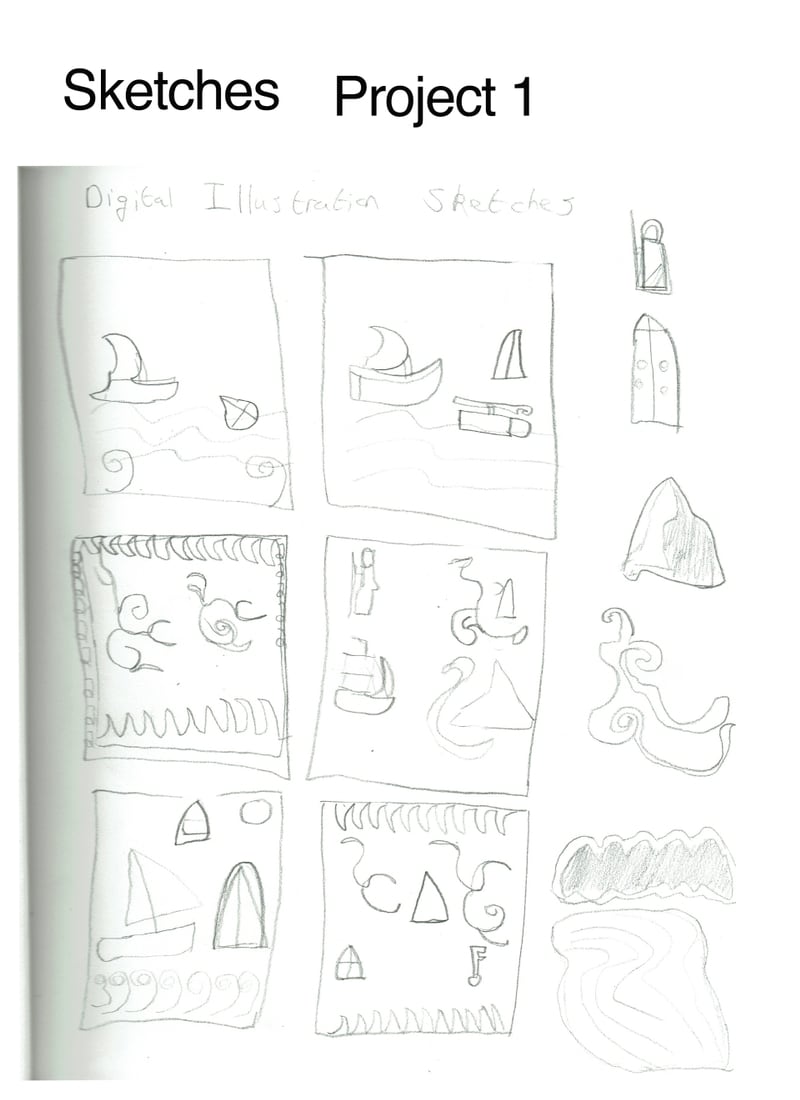 Sketches Project 1
Digital Illustration Sketches